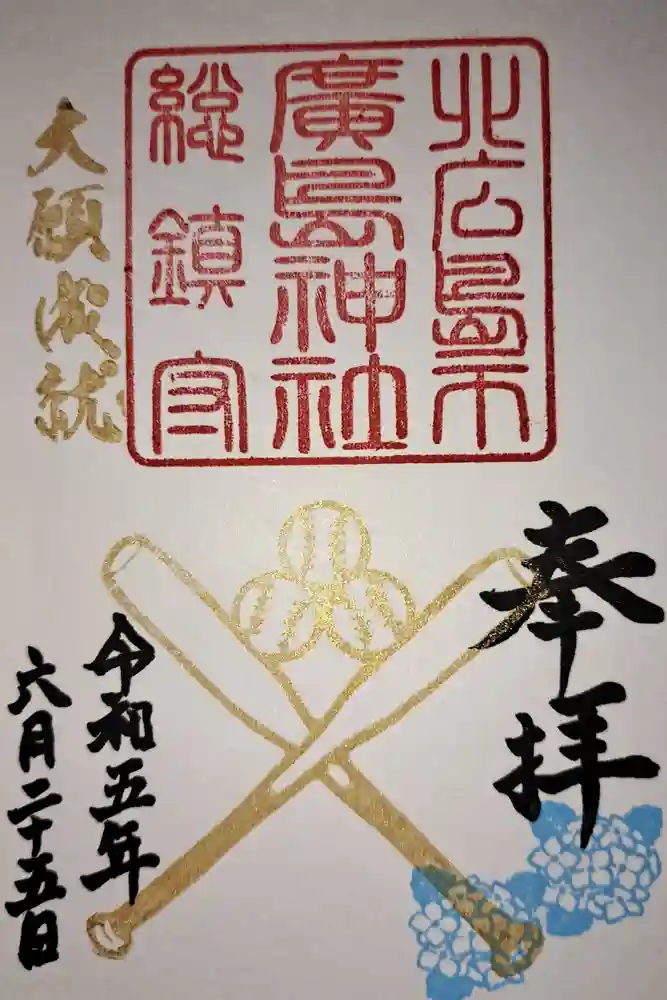 北広島市
廣島神社
総鎮守
大願成就
奉拝
令和五年
六月二十五日